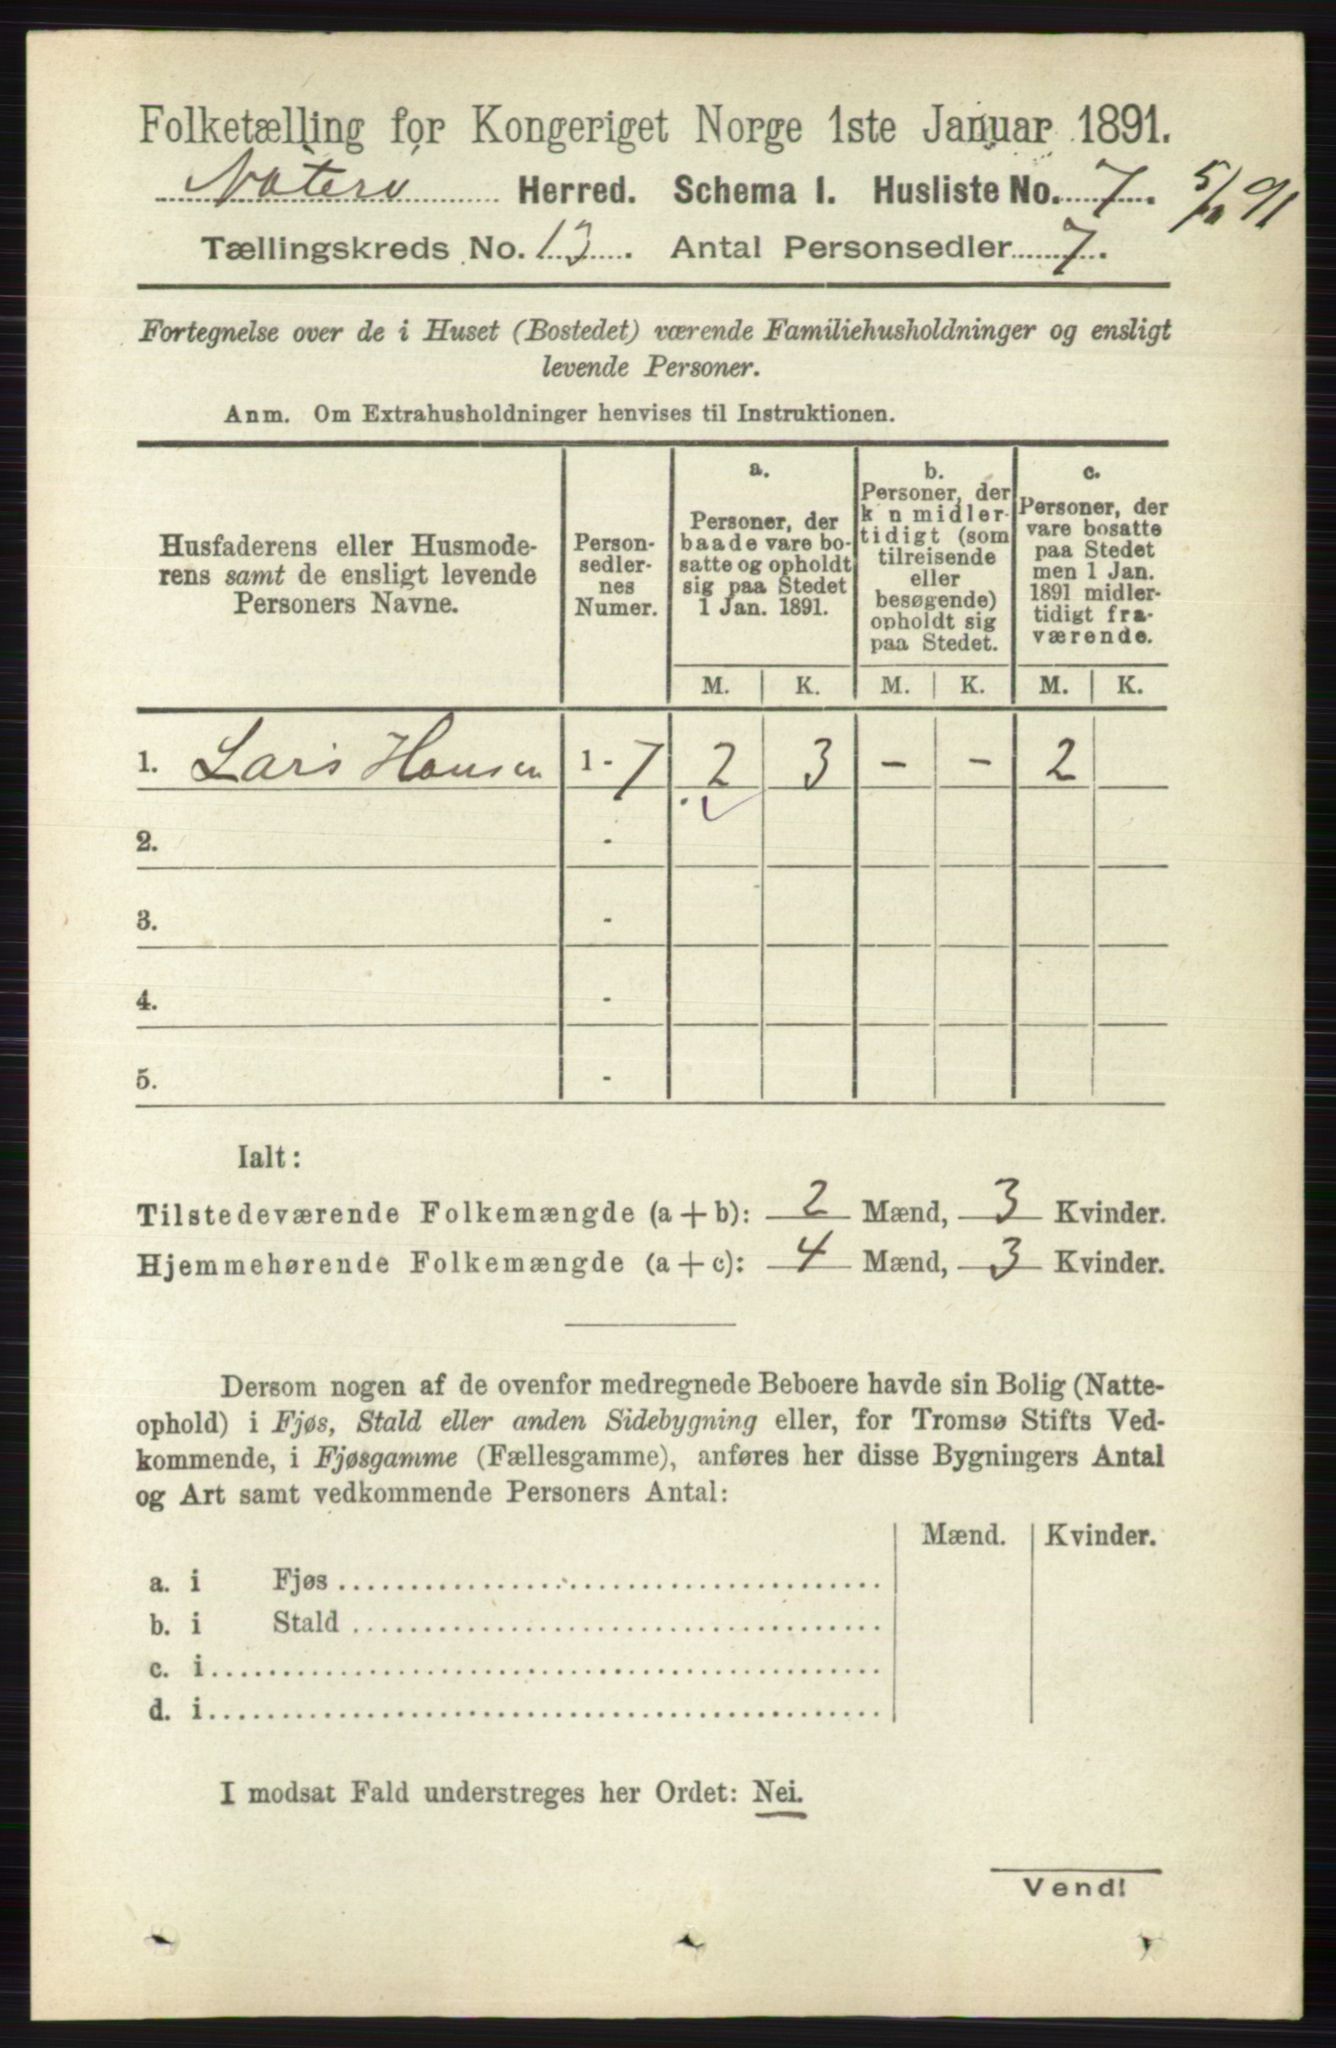 Folketælling for Kongeriget Norge 1ste Januar 1891.
Nøterø Herred. Schema I. Husliste No. 7.
Tællingskreds No. 13. Antal Personsedler 7.
Fortegnelse over de i Huset (Bostedet) værende Familiehusholdninger og ensligt
levende Personer.
Anm. Om Extrahusholdninger henvises til Instruktionen.
Husfaderens eller Husmode-
rens samt de ensligt levende
Personers Navne.
Person-
sedler-
nes
Numer.
a.
Personer, der
baade vare bo-
satte og opholdt
sig paa Stedet
1 Jan. 1891.
b.
Personer, der
k n midler-
tidigt (som
tilreisende
eller
besøgende)
opholdt sig
paa Stedet.
c.
Personer, der
vare bosatte
paa Stedet
men 1 Jan.
1891 midler-
tidigt fra-
værende.
M. K. M. K. M. K.
1. Lars Hansen 1 - 7 2 3 - - 2
2. -
3. -
4. -
5. -
Ialt:
Tilstedeværende Folkemængde (a + b): 2 Mænd, 3 Kvinder.
Hjemmehørende Folkemængde (a + c): 4 Mænd, 3 Kvinder.
Dersom nogen af de ovenfor medregnede Beboere havde sin Bolig (Natte-
ophold) i Fjøs, Stald eller anden Sidebygning eller, for Tromsø Stifts Ved-
kommende, i Fjøsgamme (Fællesgamme), anføres her disse Bygningers Antal
og Art samt vedkommende Personers Antal:
Mænd. Kvinder.
a. i Fjøs
b. i Stald
c. i
d. i
I modsat Fald understreges her Ordet: Nei.
Vend!